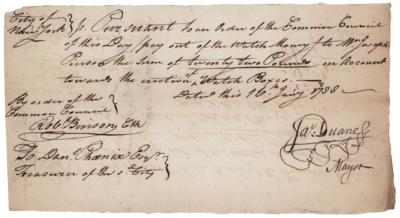 City of
New York } ss. Pursuant to an Order of the Common Council
of this Day / pay out of the Watch Money / to Mr. Joseph
Pierson the Sum of twenty two Pounds on Account
towards the erection of Watch Boxes.
Dated this 16th July 1788
By order of the
Common Council }
Robt. Benson Clk
Jas. Duane
Mayor
To Danl. Phoenix Esqr.
Treasurer of the sd. City }